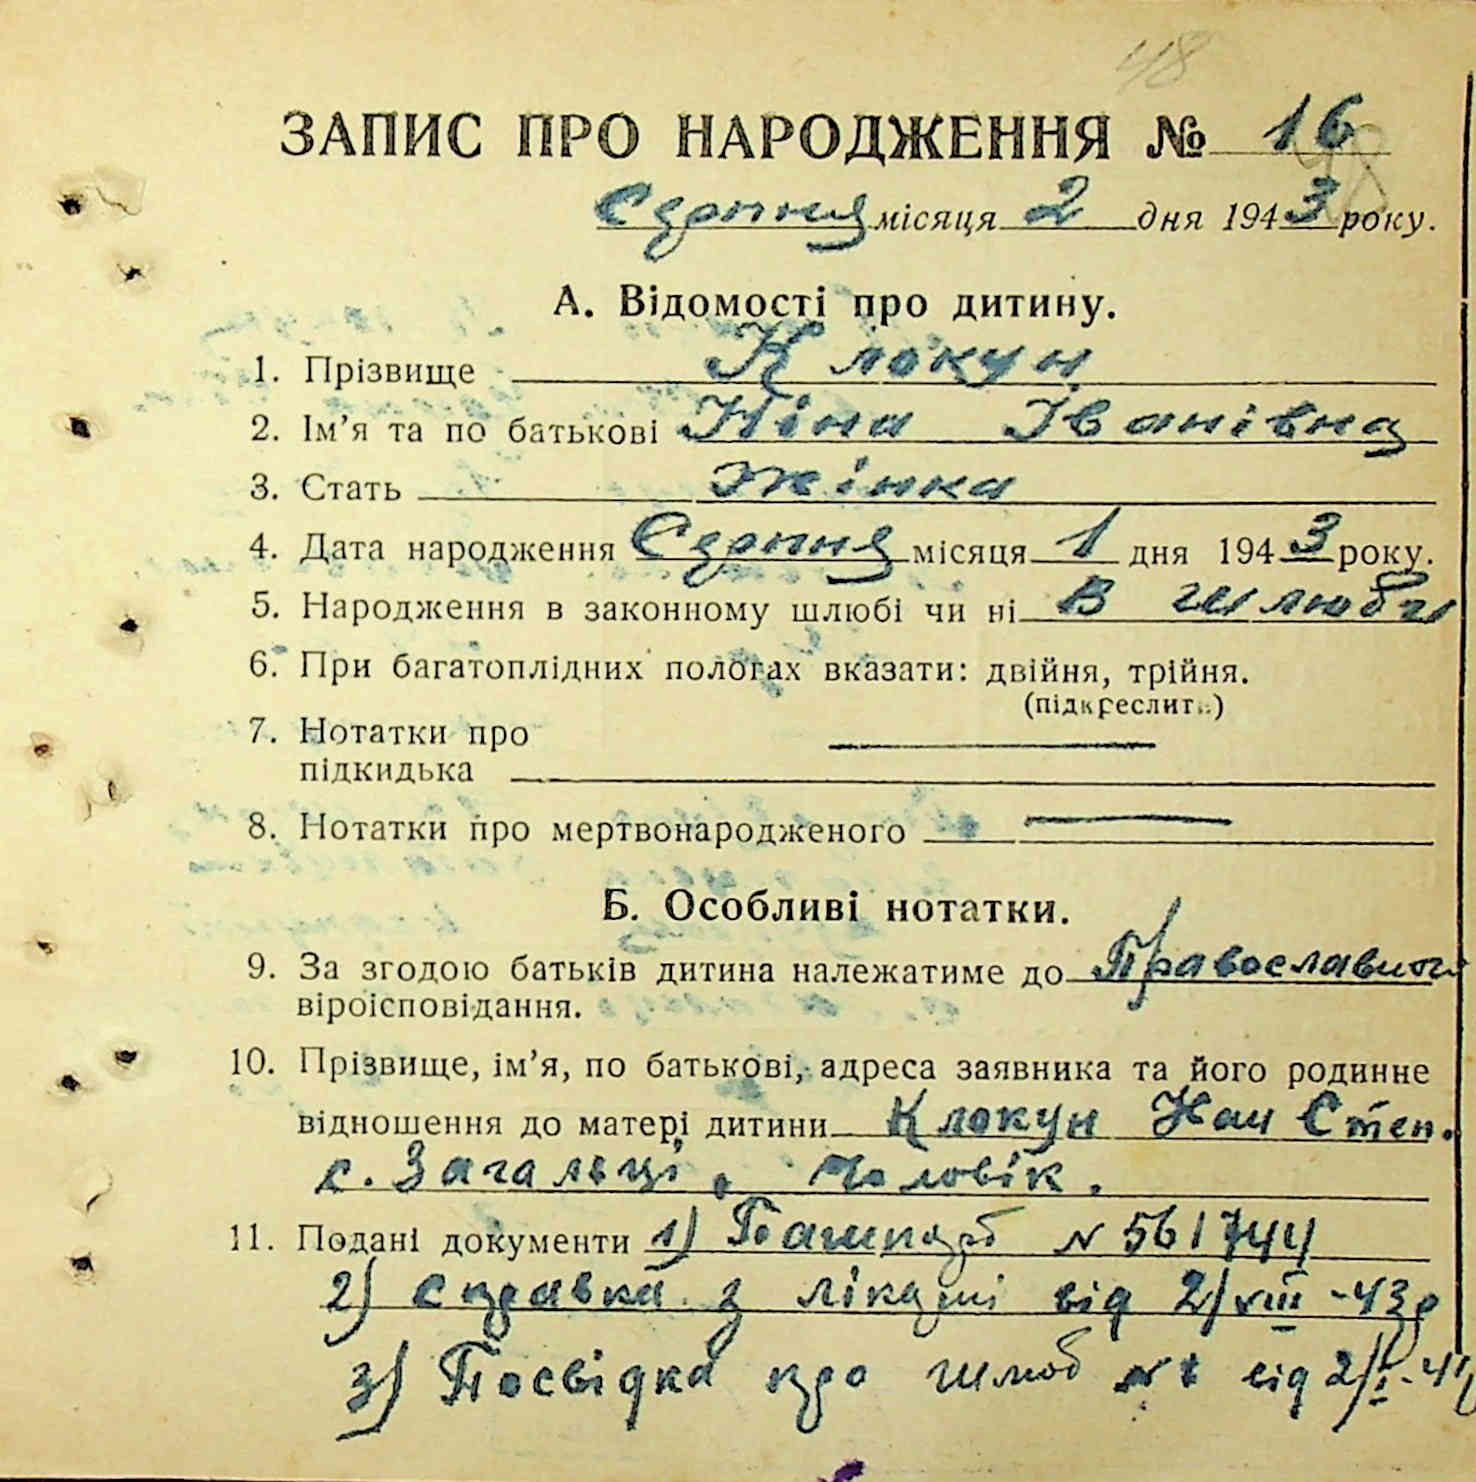 48
ЗАПИС ПРО НАРОДЖЕННЯ № 16
Серпня місяця 2 дня 1943 року.
А. Відомості про дитину.
1. Прізвище Клокун
2. Ім'я та по батькові Ніна Іванівна
3. Стать жінка
4. Дата народження Серпня місяця 1 дня 1943 року.
5. Народження в законному шлюбі чи ні В шлюбі
6. При багатоплідних пологах вказати: двійня, трійня.
(підкреслить)
7. Нотатки про
підкидька
8. Нотатки про мертвонародженого
Б. Особливі нотатки.
9. За згодою батьків дитина належатиме до Православного
віроісповідання.
10. Прізвище, ім'я, по батькові, адреса заявника та його родинне
відношення до матері дитини Клокун Степ.
с. Загальці, чоловік.
11. Подані документи 1) Пашпорт № 561744
2) Справка з лікарні від 2/VIII-43р
3) Посвідка про шлюб № від 2/I-41